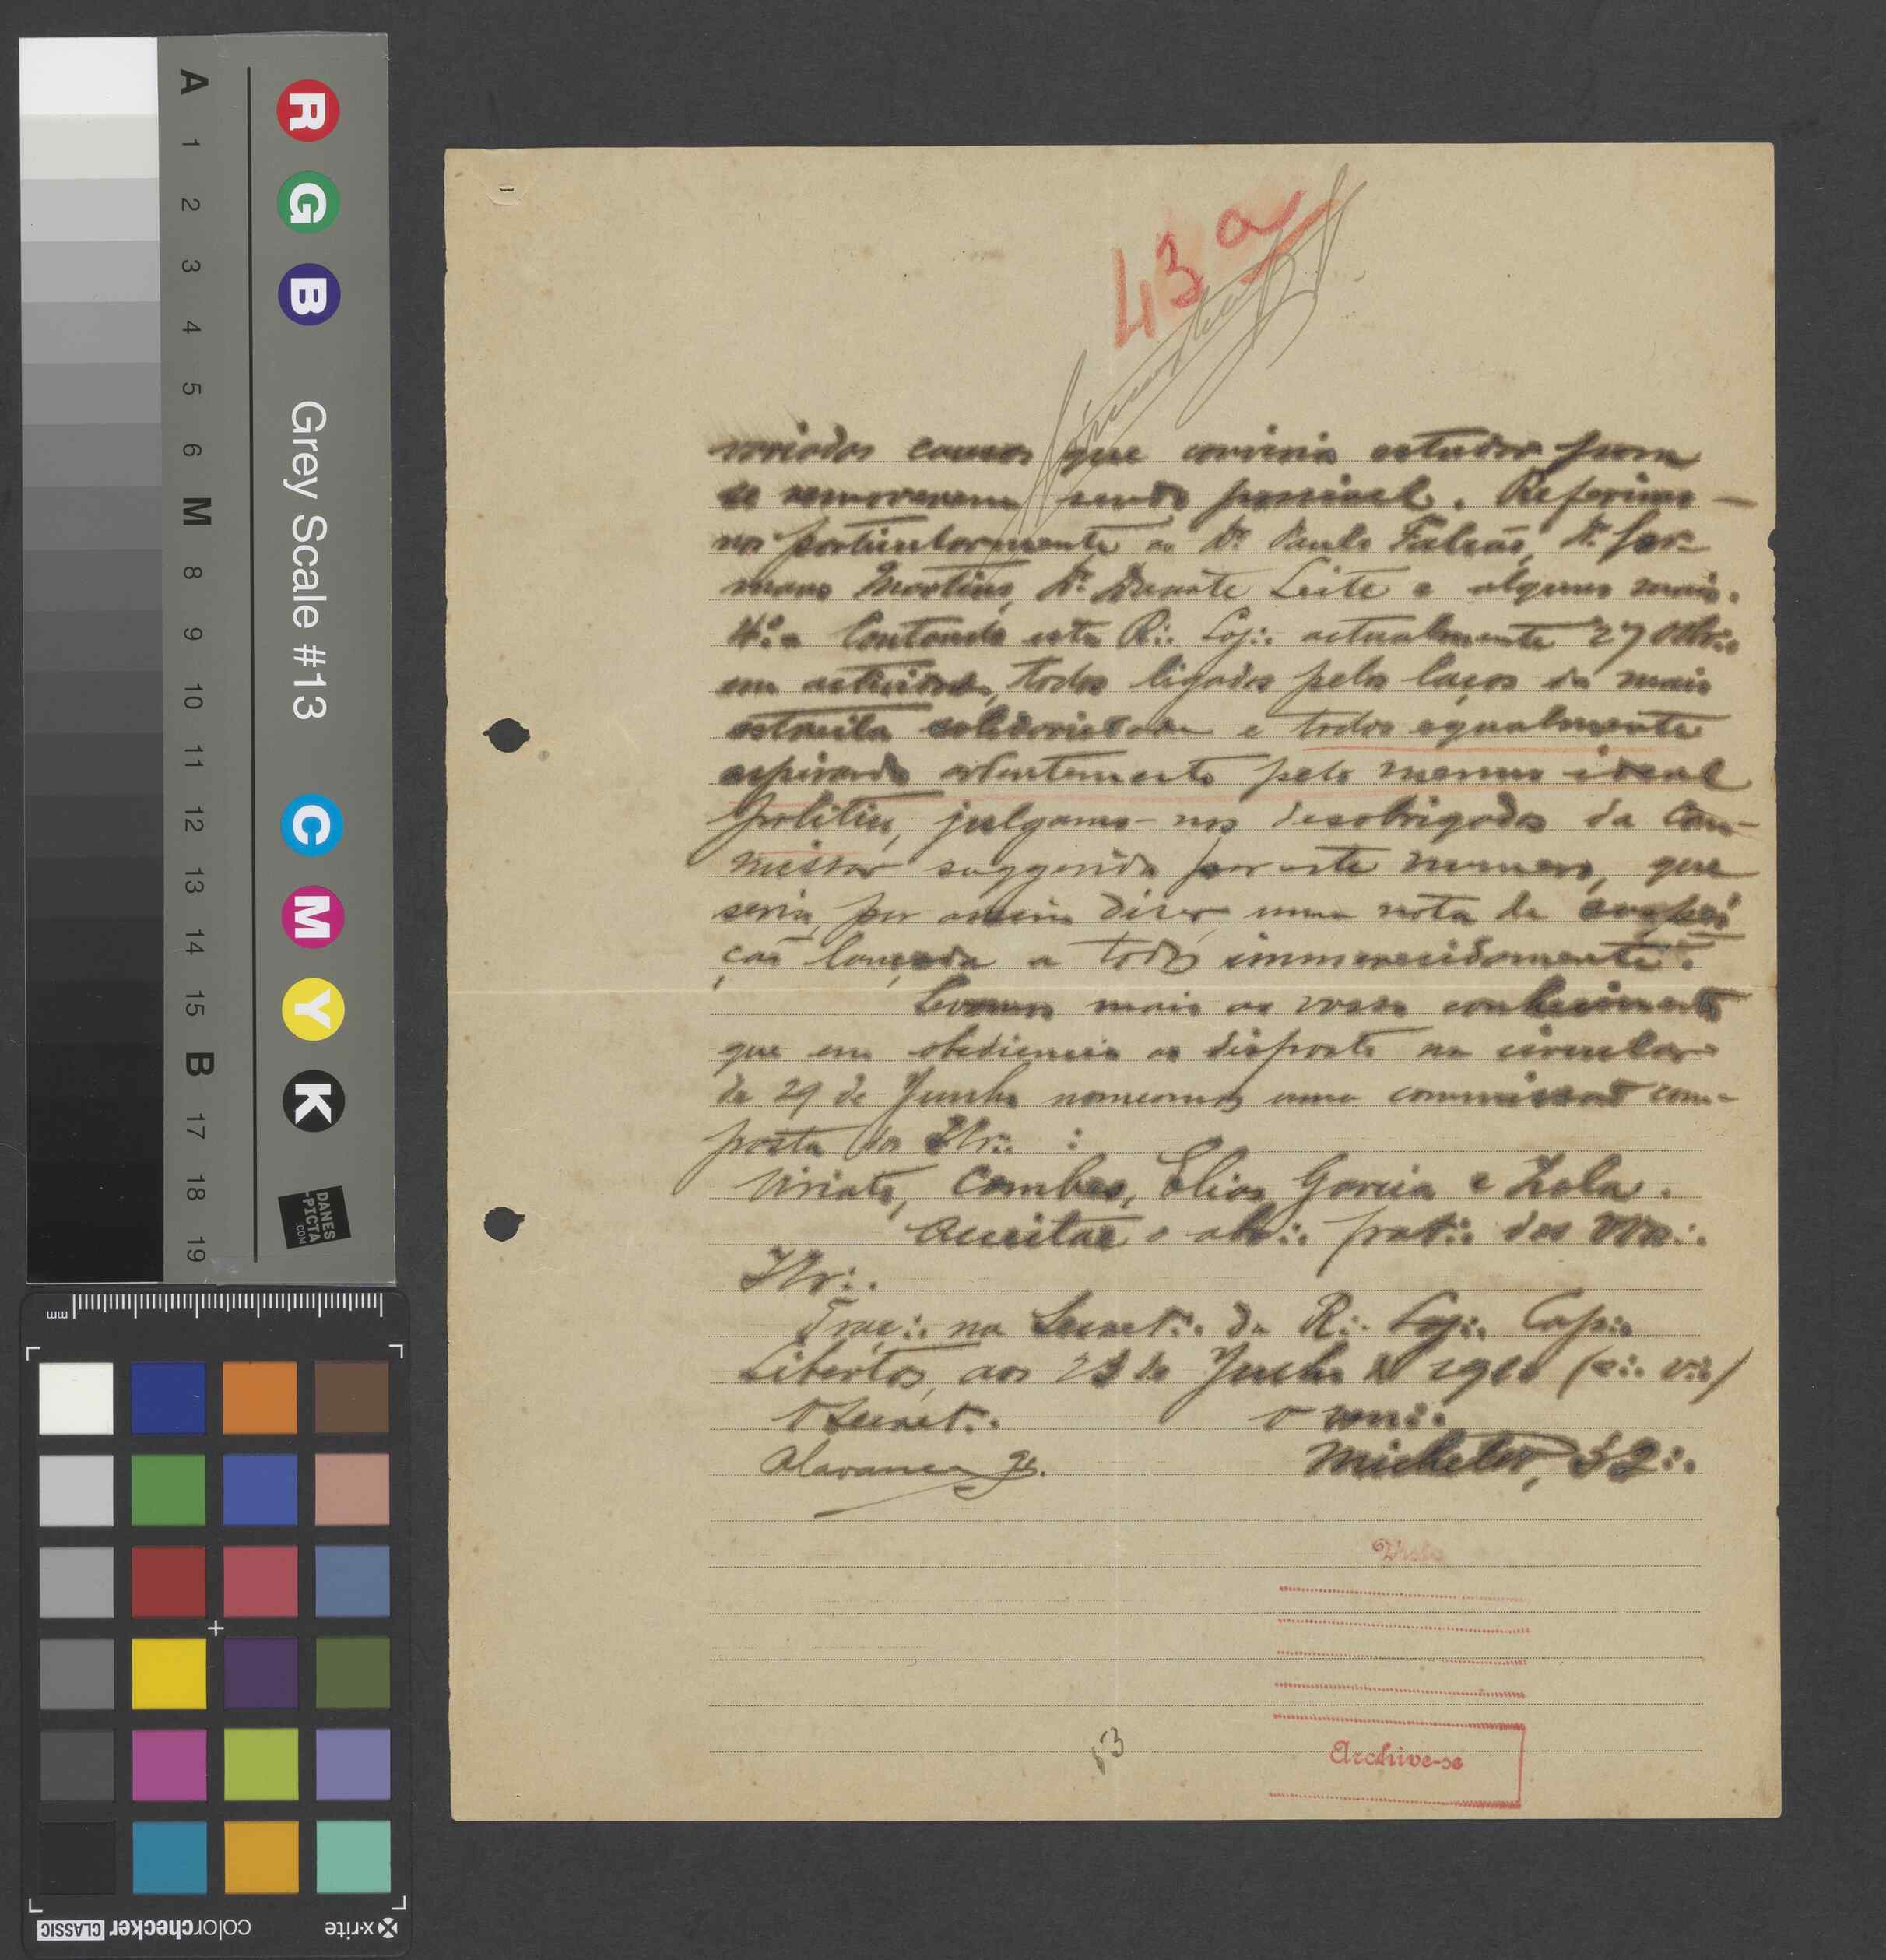 43 a
variadas causas que conviria estudar para
se removerem sendo possivel. Referimo-
nos particularmente ao Dr. Paulo Falcão, Dr. Ger-
mano Martins, Dr. Duarte Leite e alguns mais.
4.º Contando esta R∴ Loj∴ actualmente 27 Obr∴
em actividade, todos ligados pelos laços da mais
estreita solidariedade e todos egualmente
aspirando ardentemente pelo mesmo ideal
politico, julgamo-nos desobrigados da com-
missão suggerida por este numero, que
seria, por assim dizer, uma nota de suspei-
ção lançada a todos immerecidamente.
Levamos mais ao vosso conhecimento
que em obediencia ao disposto na circular
de 29 de Junho nomeamos uma commissão com-
posta dos Ilr∴ :
Viriato, Combes, Elias Garcia e Zola.
Acceitae o abr∴ frat∴ dos VVos∴
IIr∴
Traç∴ na Secret∴ da R∴ Loj∴ Cap∴
Libertas, aos 23 de Julho de 1910 (e∴ v∴)
O Secret∴
O ven∴
Alavanca
Michelet, 32∴
Visto
Archive-se
53
A 1 2 3 4 5 6 M 8 9 10 11 12 13 14 15 B 17 18 19
R G B Grey Scale #13 C M Y K
DANES
-PICTA
.COM
mm
x-rite
colorchecker CLASSIC